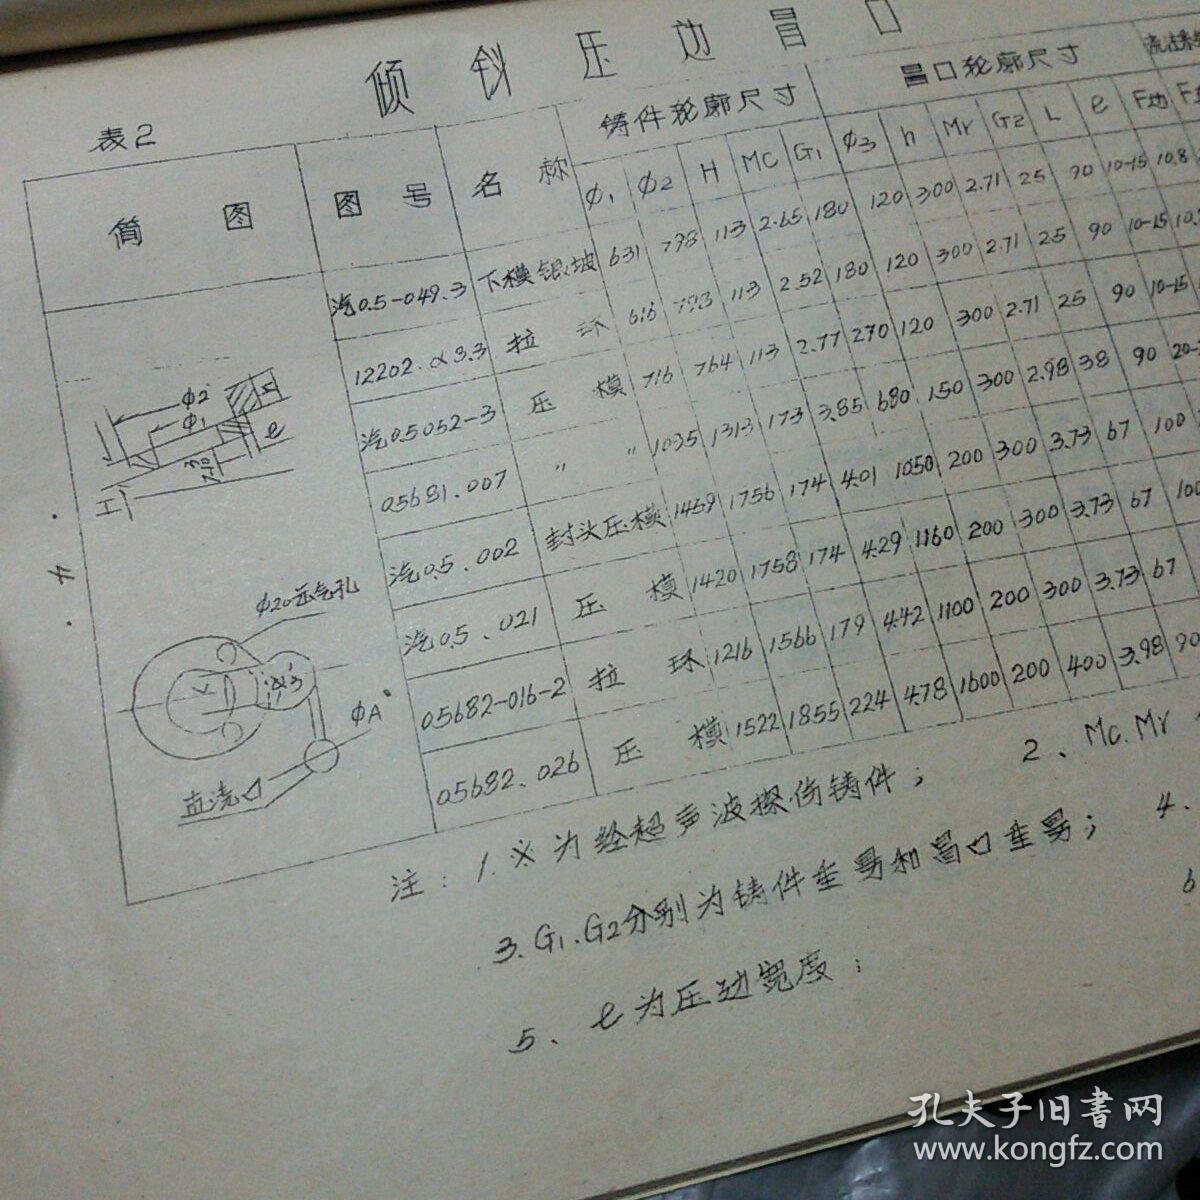 倾斜压边冒口
表2
简图 图号 名称 铸件轮廓尺寸 冒口轮廓尺寸
φ1 φ2 H Mc G1 φ3 h Mr G2 L e F边
汽0.5-049.3 下模镶坡 631 798 113 2.65 180 120 300 2.71 25 90 10-15 10.8
12202.α3.3 拉环 616 793 113 2.52 180 120 300 2.71 25 90 10-15
汽0.5052-3 压模 716 764 113 2.77 270 120 300 2.71 25 90 10-15
05681.007 〃 〃 1035 1313 173 3.85 680 150 300 2.98 38 90
汽0.5.002 封头压模 1459 1756 174 4.01 1050 200 300 3.73 67 100
汽0.5.021 压模 1420 1758 174 4.29 1160 200 300 3.73 67 100
05682-016-2 拉环 1216 1566 179 4.42 1100 200 300 3.73 67
05682.026 压模 1522 1855 224 4.78 1600 200 400 3.98 90
φ2
φ1
e
φ20出气孔
φ3
φA
直浇口
注: 1.※为经超声波探伤铸件; 2、Mc.Mr
3.G1.G2分别为铸件重量和冒口重量; 4.
5、e为压边宽度; 6
孔夫子旧书网
www.kongfz.com